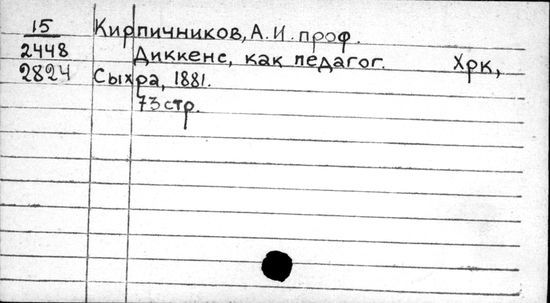 15 Кирпичников, А. И. проф.
2448 Диккенс, как педагог. Хрк,
2824 Сыхра, 1881.
73 стр.